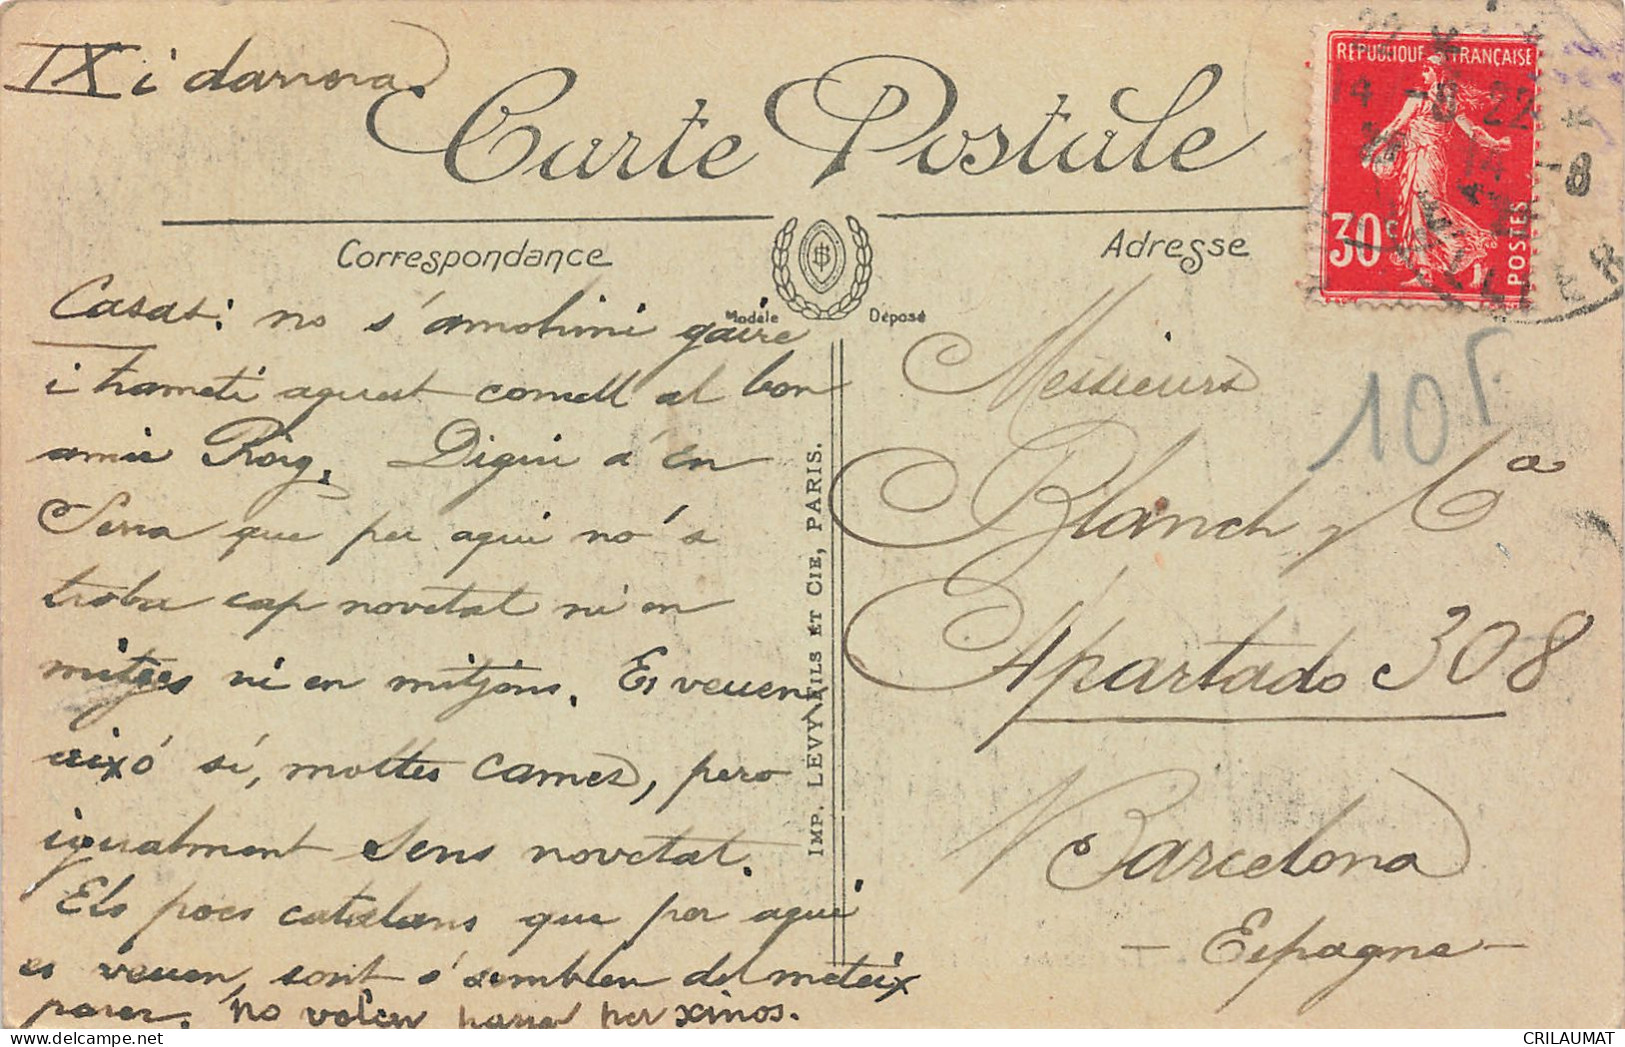 IX i darrera
Carte Postale
RÉPUBLIQUE FRANÇAISE
30c
POSTES
14 -8 22
14 -8
Correspondance
Adresse
Modèle Déposé
Casas: no s'amohini gaire
i trameti aquest consell al bon
amic Roig. Digui a'en
Serra que per aqui no's
troba cap novetat ni en
mitges ni en mitjons. Es veuen
aixó sí, moltes cames, pero
igualment sens novetat.
Els pocs catalans que per aqui
es veuen, sont s'emblen del mateix
parer. No volen passar per xinos.
IMP. LEVY FILS ET CIE, PARIS.
Messieurs
Blanch y Cª
Apartado 308
Barcelona
- Espagne -
10F
CRILAUMAT